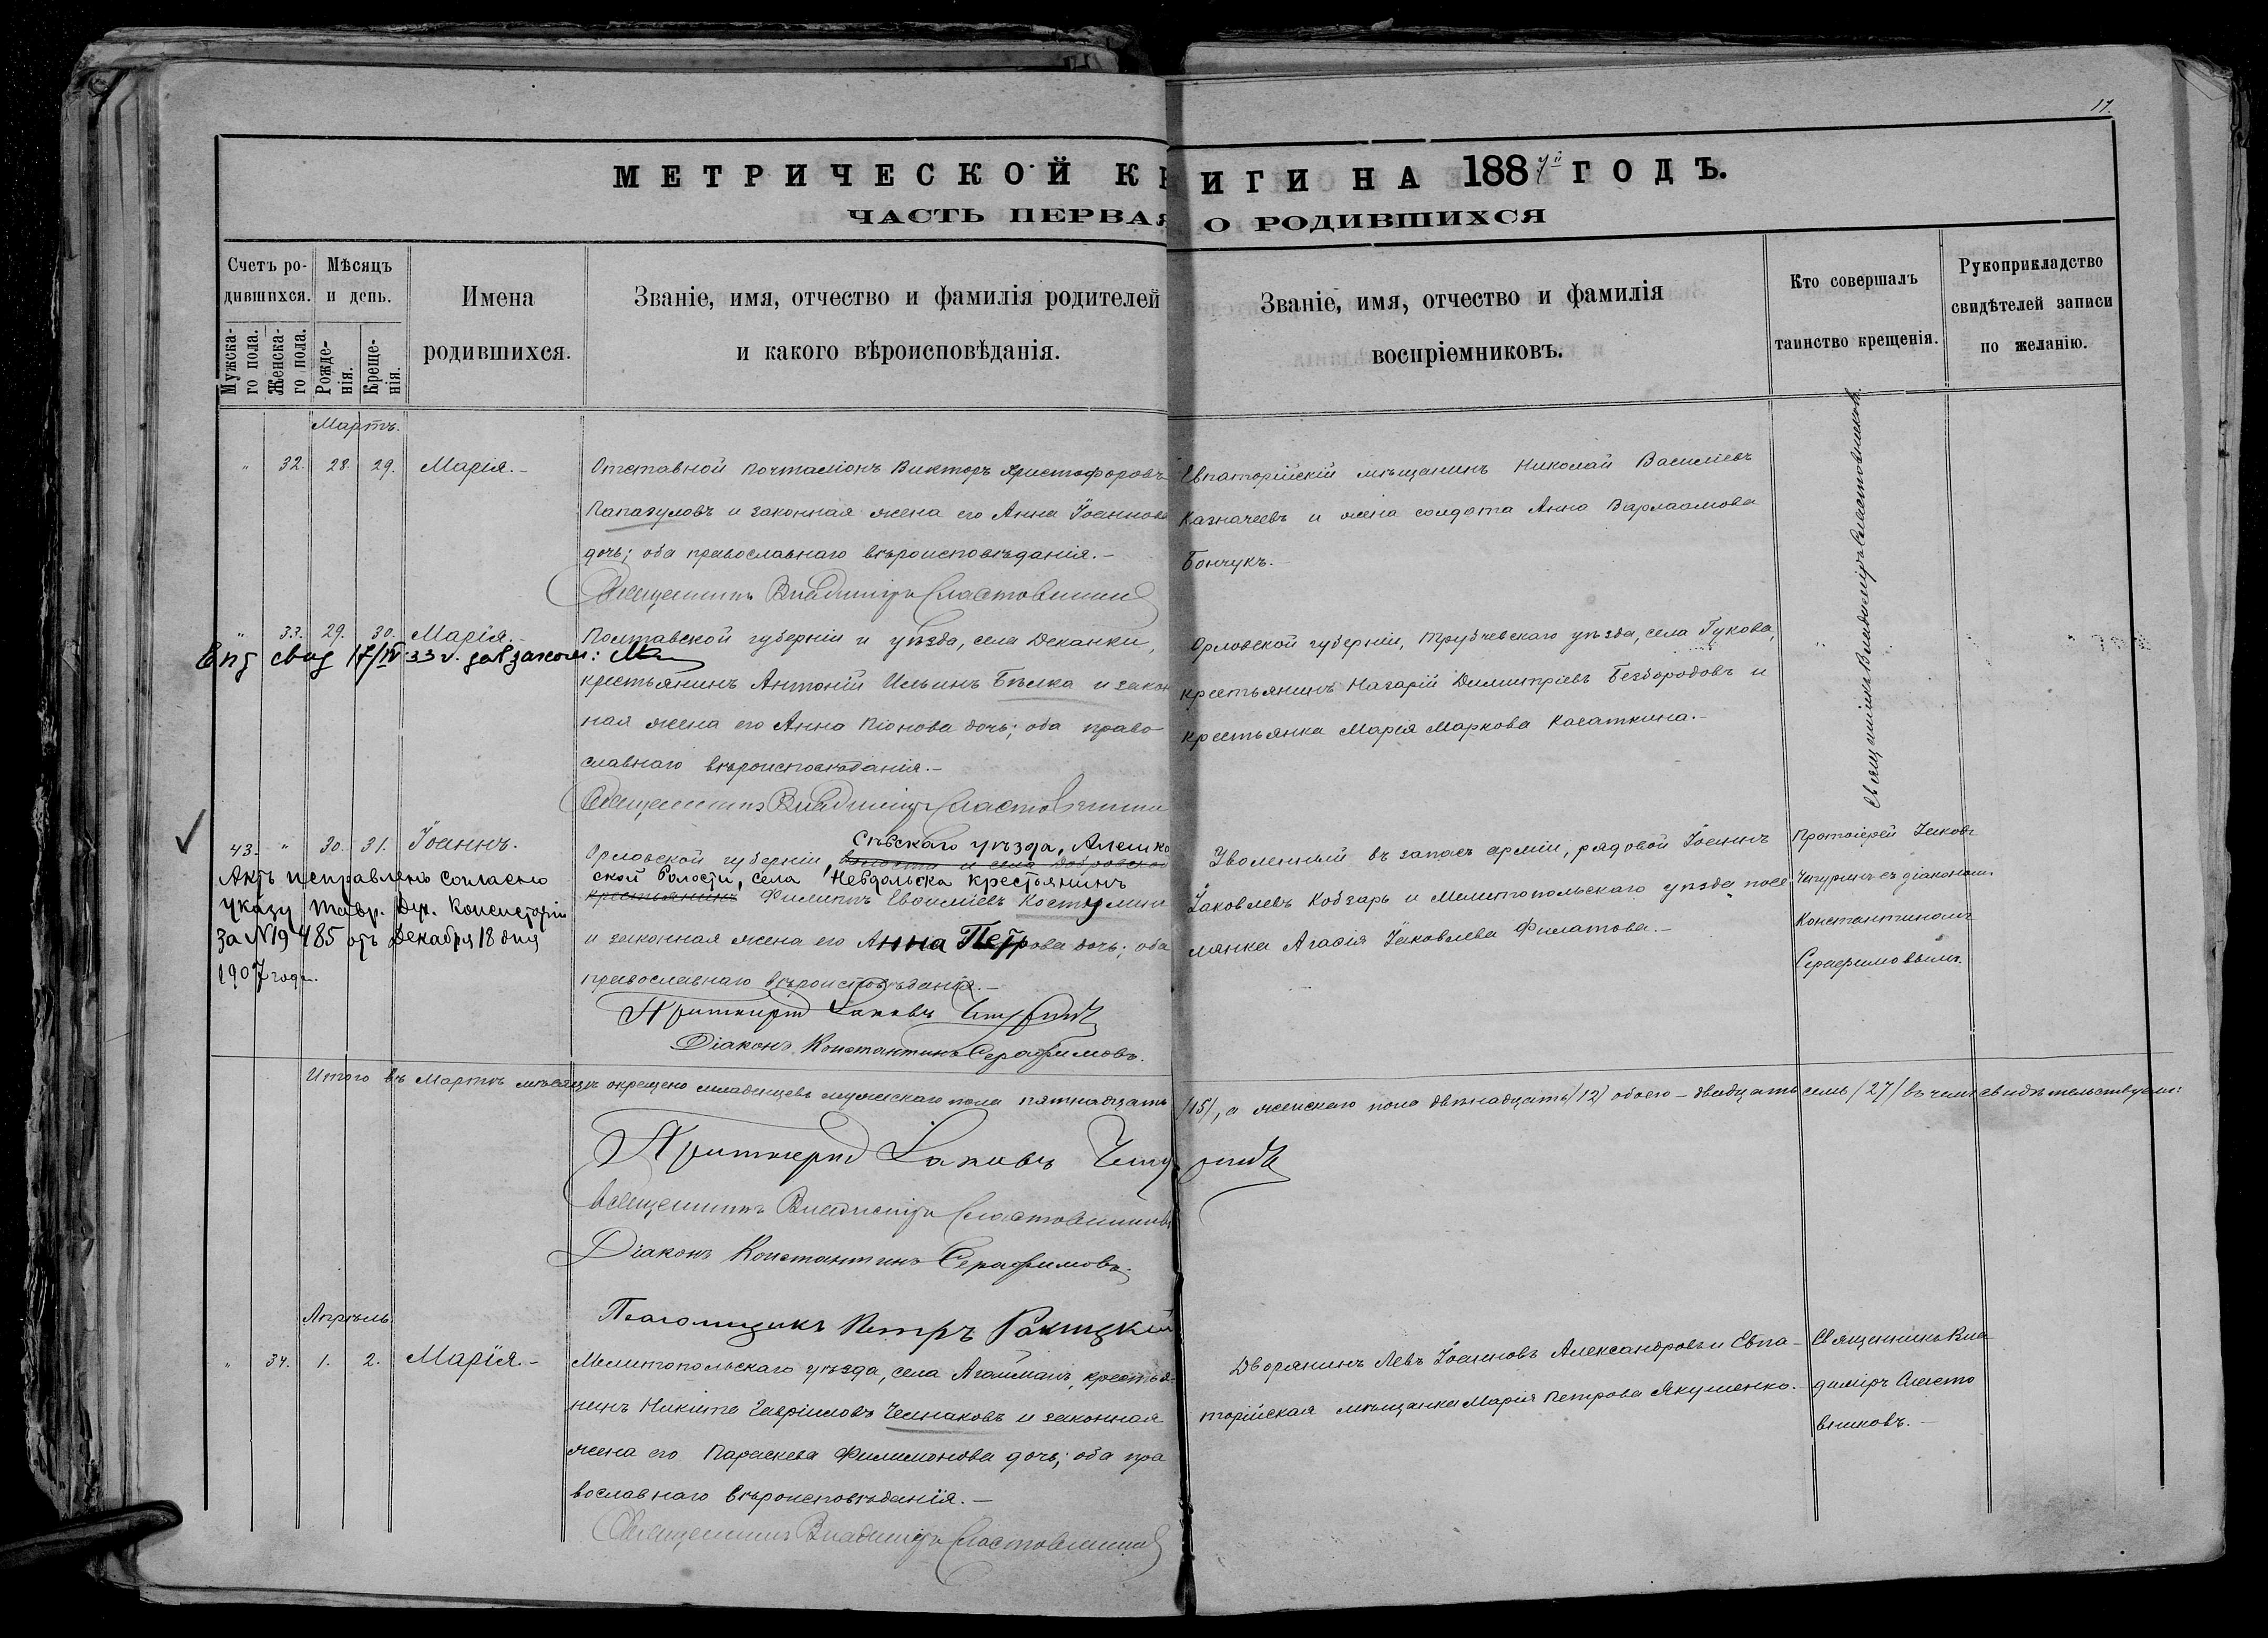 17.
МЕТРИЧЕСКОЙ КНИГИ НА 1887й ГОДЪ.
ЧАСТЬ ПЕРВАЯ О РОДИВШИХСЯ
Счетъ ро-
дившихся.
Мужска-
го пола.
Женска-
го пола.
Мѣсяцъ
и день.
Рожде-
нія.
Креще-
нія.
Имена
родившихся.
Званіе, имя, отчество и фамилія родителей
и какого вѣроисповѣданія.
Званіе, имя, отчество и фамилія
воспріемниковъ.
Кто совершалъ
таинство крещенія.
Рукоприкладство
свидѣтелей записи
по желанію.
Мартъ.
" 32. 28. 29. Марія.-
Отставной почталіонъ Викторъ Христофоровъ
Папазуловъ и законная жена его Анна Іоаннова
дочь; оба православнаго вѣроисповѣданія.-
Священникъ Владиміръ Сластовниковъ
Евпаторійскій мѣщанинъ Николай Василіевъ
Казначеевъ и жена солдата Анна Варлаамова
Бончукъ.-
Священникъ Владиміръ Сластовниковъ.
" 33. 29. 30. Марія.-
свид 17/IV 33 г.
Полтавской губерніи и уѣзда, села Деканки,
крестьянинъ Антоній Ильинъ Бѣлка и закон
ная жена его Анна Піонова дочь; оба право-
славнаго вѣроисповѣданія.-
Священникъ Владиміръ Сластовников
Орловской губерніи, Трубчевскаго уѣзда, села Гукова,
крестьянинъ Назарій Димитріевъ Безбородовъ и
крестьянка Марія Маркова Касаткина.-
43. " 30. 31. Іоаннъ.
Актъ исправленъ согласно
указу Тавр. Дух. Консисторіи
за N19485 отъ Декабря 18 дня
1907 года.
Сѣвскаго уѣзда, Алешко
Орловской губерніи, волости и села Добровской
ской Волости, села Невдольска крестьянинъ
крестьянинъ Филиппъ Евсиліевъ Костулин
и законная жена его Анна Петрова дочь; оба
православнаго вѣроисповѣданія.-
Протоіерей Іаковъ Чепуринъ
Діаконъ Константинъ Серафимовъ.
Уволенный въ запасъ арміи, рядовой Іоаннъ
Іаковлевъ Кобзарь и Мелитопольскаго уѣзда посе
лянка Агафія Іаковлева Филатова.-
Протоіерей Іаковъ
Чепуринъ съ діакономъ
Константиномъ
Серафимовымъ.
Итого въ Мартѣ мѣсяцѣ окрещено младенцевъ мужескаго пола пятнадцать /15/, а женскаго пола двѣнадцать /12/ обоего - двадцать семь /27/ въ чемъ свидѣтельствуемъ:
Протоіерей Іаковъ Чепуринъ
Священникъ Владиміръ Сластовниковъ
Діаконъ Константинъ Серафимовъ.
Псаломщикъ Петръ Ракицкій
Апрѣль
" 34. 1. 2. Марія.-
Мелитопольскаго уѣзда, села Агаймановъ, крестья-
нинъ Никита Гавріиловъ Чемнаковъ и законная
жена его Параскева Филимонова дочь; оба пра
вославнаго вѣроисповѣданія.-
Священникъ Владиміръ Сластовниковъ
Дворянинъ Левъ Іоанновъ Александровъ и Евпа-
торійская мѣщанка Марія Петрова Якушенко.-
Священникъ Вла
диміръ Сласто
вниковъ.-